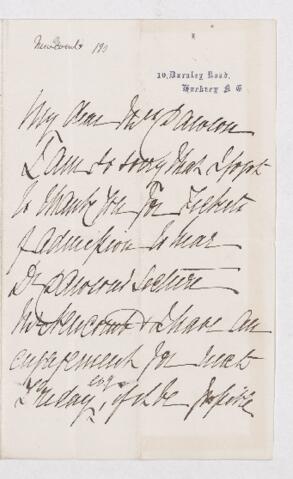 10, Darnley Road,
Hackney N E
My dear Mrs Dawson
I am so sorry that I forgot
to thank you for Tickets
of admission to hear
Dr Dawson's Lecture
& I have an
engagement for next
Friday, if it be possible